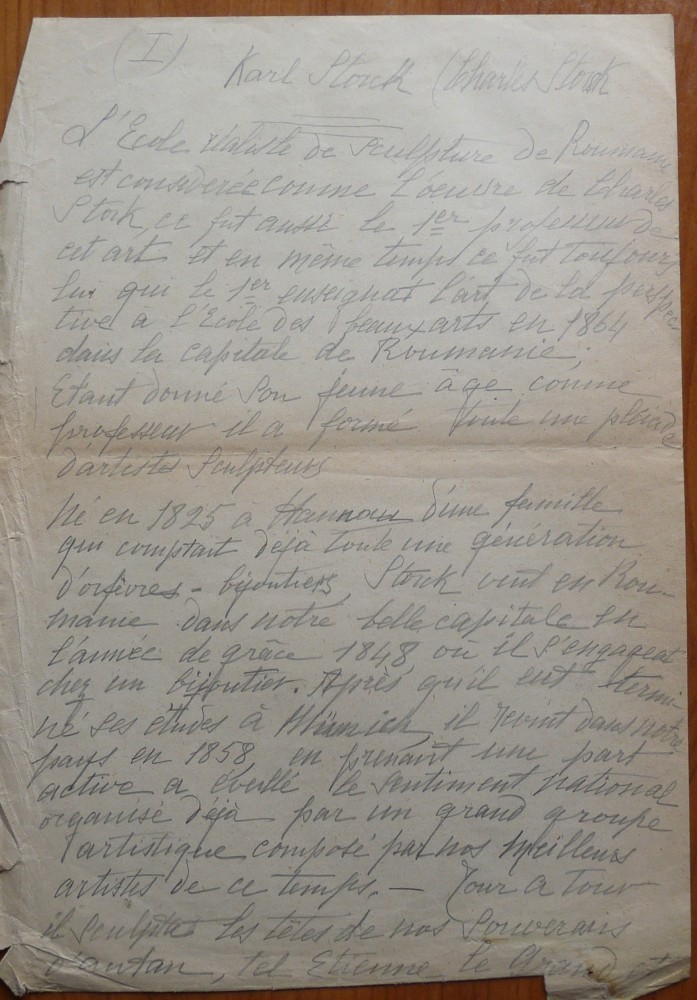 (I)
Karl Storck (Charles Storck
L'Ecole réaliste de sculpture de Roumanie
est considérée comme l'oeuvre de Charles
Stork, ce fut aussi le 1er professeur de
cet art et en même temps ce fut toujours
lui qui le 1er enseignat l'art de la perspec
tive a l'Ecole des beaux arts en 1864
dans la capitale de Roumanie.
Etant donné son jeune âge comme
professeur il a formé toute une pleiade
d'artistes sculpteurs
Né en 1825 à Hannau d'une famille
qui comptait déjà toute une génération
d'orfèvres - bijoutiers, Stork vint en Rou-
manie dans notre belle capitale en
l'année de grâce 1848, où il s'engageat
chez un bijoutier. Après qu'il eut termi-
né ses études à Münich, il revint dans notre
pays en 1858, en prenant une part
active a éveillé le sentiment national
organisé déjà par un grand groupe
artistique composé par nos meilleurs
artistes de ce temps. — Tour a tour
il sculpta les têtes de nos Souverains
d'antan, tel Etienne le Grand et